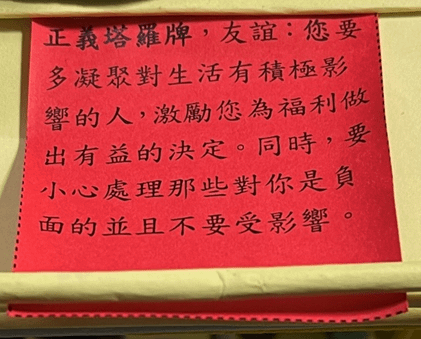 正義塔羅牌，友誼：您要
多凝聚對生活有積極影
響的人，激勵您為福利做
出有益的決定。同時，要
小心處理那些對你是負
面的並且不要受影響。